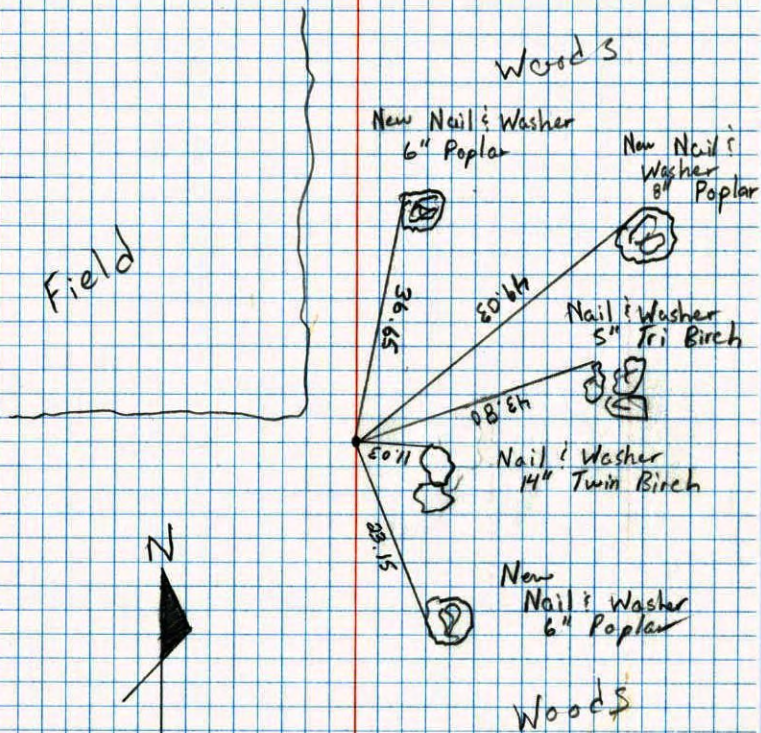 Woods
New Nail & Washer
6" Poplar
New Nail &
Washer
8" Poplar
Field
36.65
49.03
Nail & Washer
5" Tri Birch
43.80
11.03
Nail & Washer
14" Twin Birch
23.15
N
New
Nail & Washer
6" Poplar
Woods